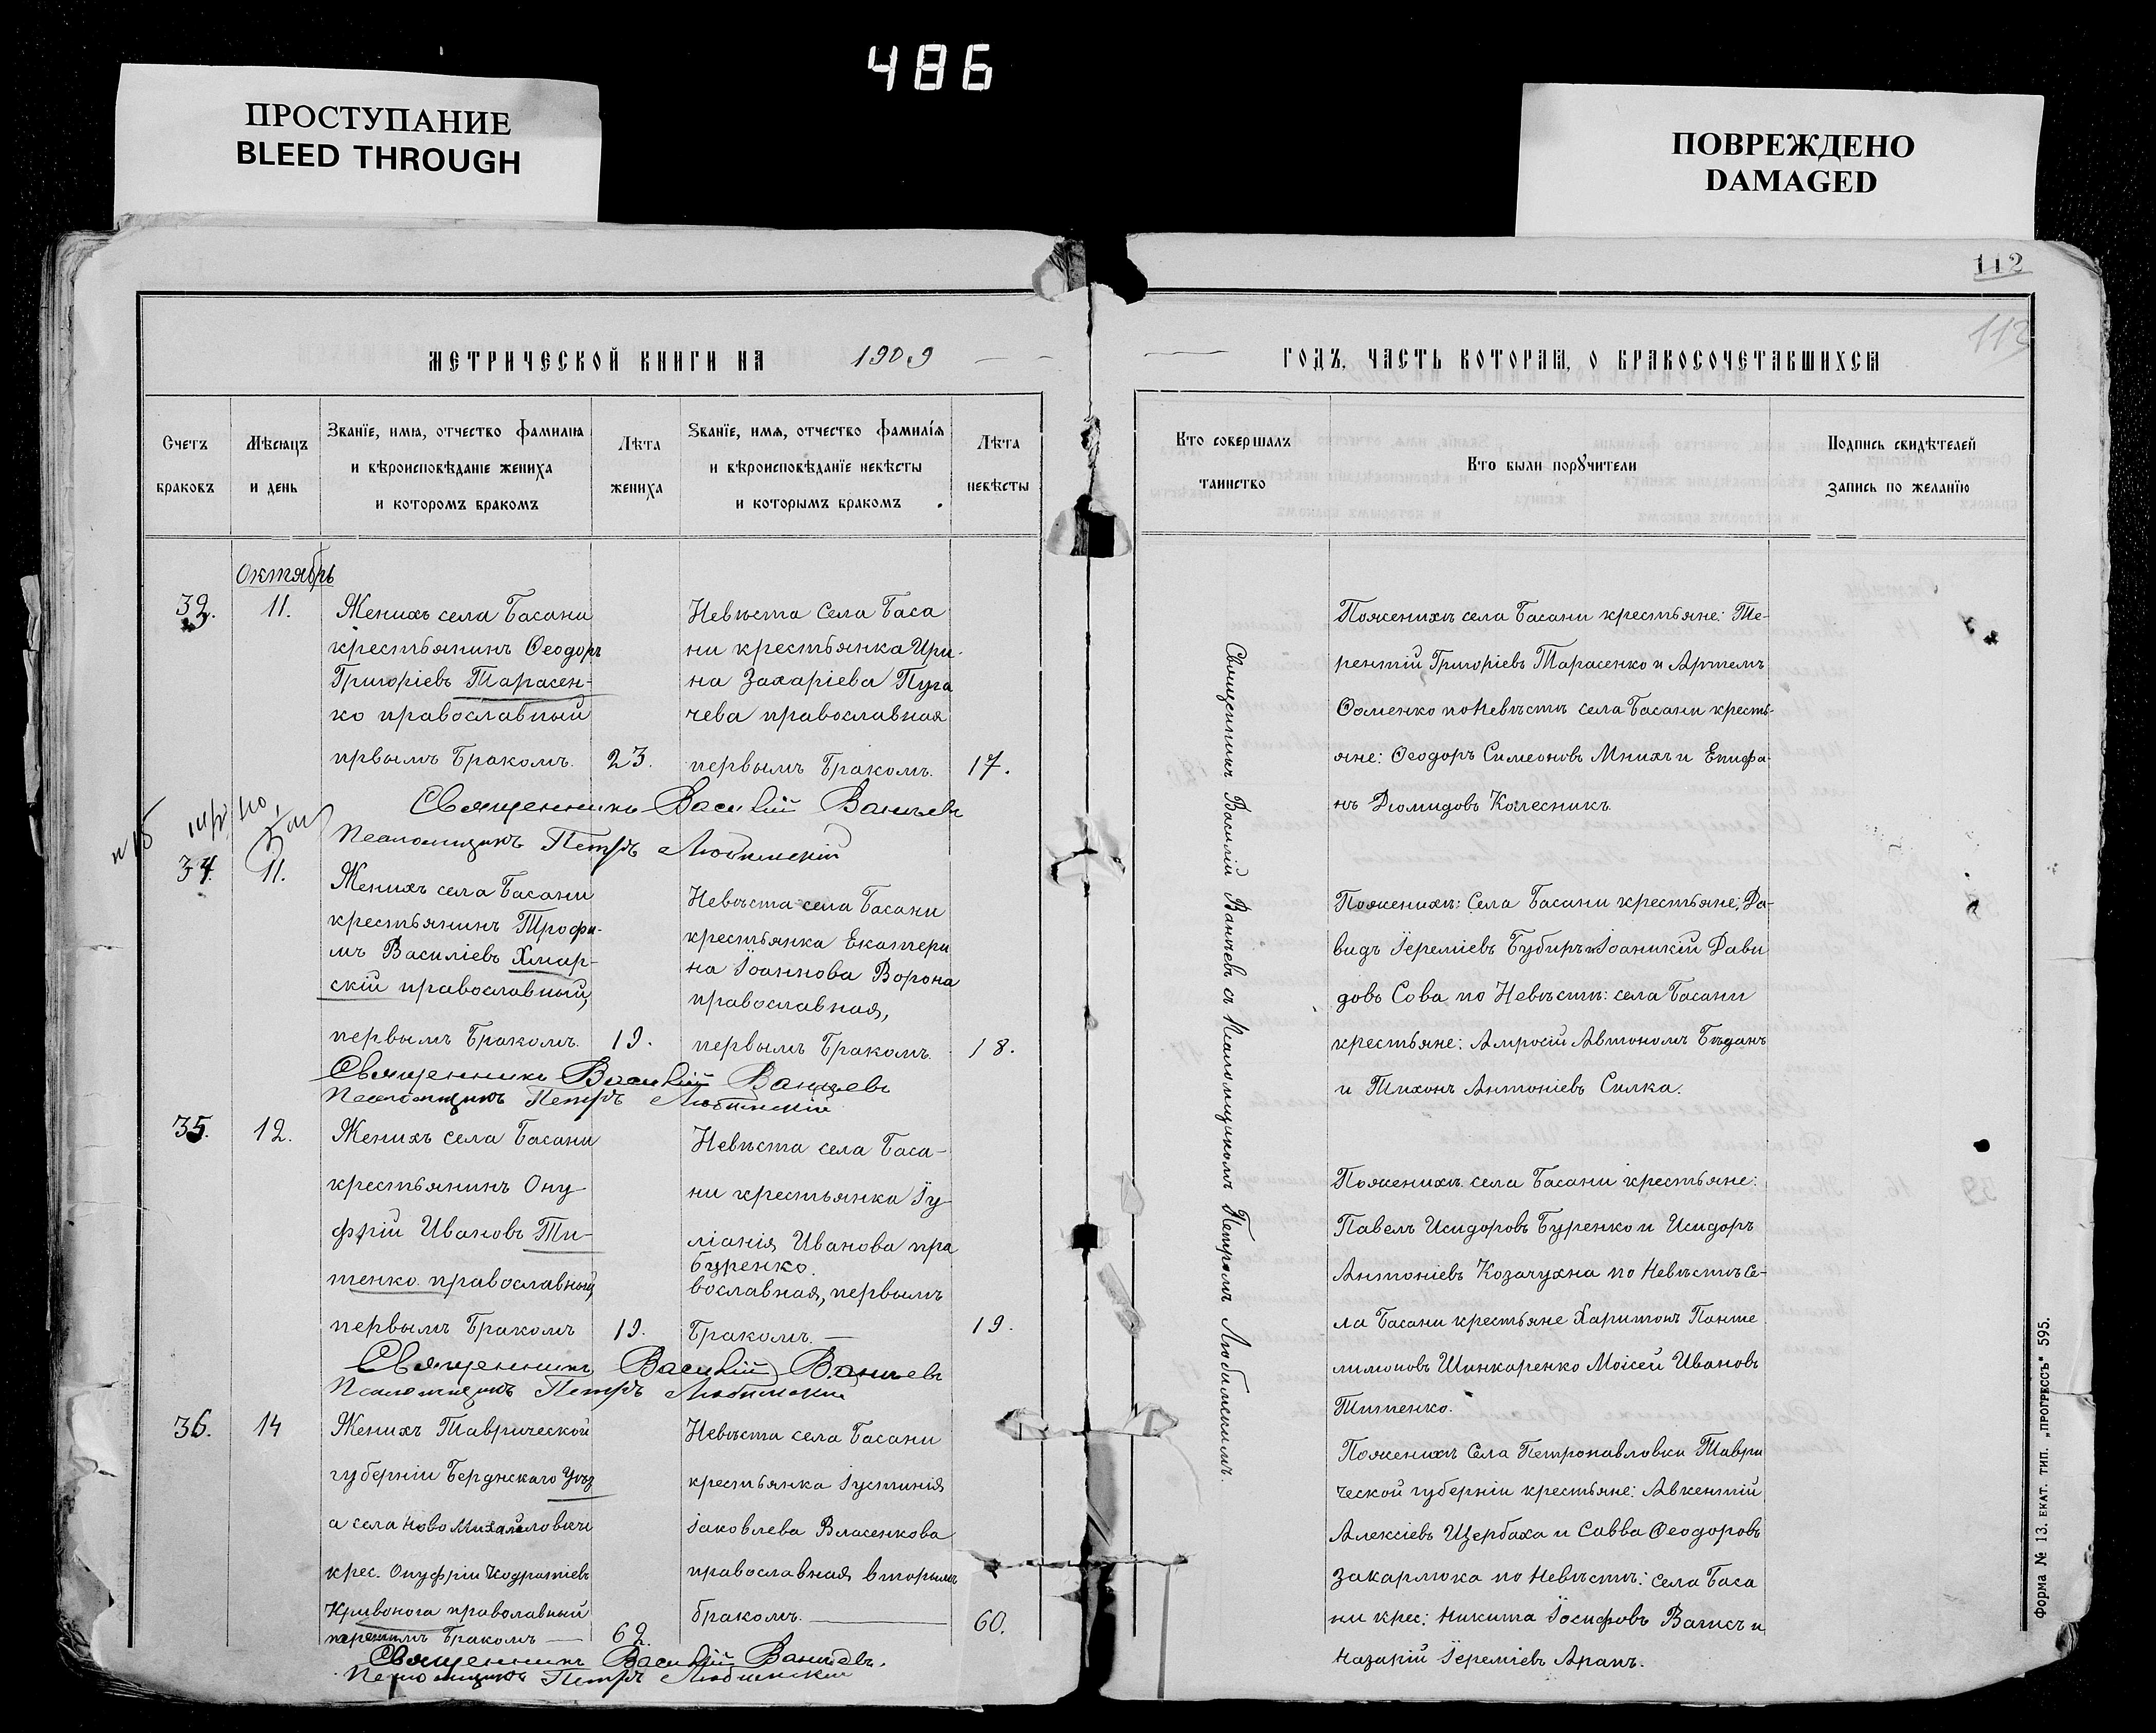 486
ПРОСТУПАНИЕ
BLEED THROUGH
ПОВРЕЖДЕНО
DAMAGED
112
113
МЕТРИЧЕСКОЙ КНИГИ НА 1909
ГОДЪ, ЧАСТЬ КОТОРАЯ, О БРАКОСОЧЕТАВШИХСЯ
Счетъ браковъ
Мѣсяцъ и день
Званїе, имя, отчество фамилія
и вѣроисповѣданіе жениха
и котороmъ бракомъ
Лѣта жениха
Званїе, имѧ, отчество фамилїя
и вѣроисповѣданїе невѣсты
и которымъ бракомъ
Лѣта невѣсты
Кто совершалъ таинство
Кто были порꙋчители
Подпись свидѣтелей
запись по желанїю
Октябрь
11.
Женихъ села Басани
крестьянинъ Ѳеодоръ
Григоріевъ Тарасен-
ко православный
првымъ бракомъ. 23.
Невѣста села Баса
ни крестьянка Ири-
на Захаріева Пуга
чева православная
первымъ бракомъ. 17.
Священникъ Василій Ваньчевъ
Псаломщикъ Петръ Любимскій
Поженихѣ села Басани крестьяне: Те-
рентій Григоріевъ Тарасенко и Артемъ
Ѳоменко по Невѣстѣ села Басани кресть-
яне: Ѳеодоръ Симеоновъ Мнихъ и Епифа-
нъ Діомидовъ Колесникъ.
34. 11.
Женихъ села Басани
крестьянинъ Трофи-
мъ Василіевъ Хмар-
скій православный,
первымъ бракомъ. 19.
Невѣста села Басани
крестьянка Екатери
на Іоаннова Ворона
православная,
первымъ бракомъ. 18.
Священникъ Василій Ваньчевъ
Псаломщикъ Петръ Любимскій
Поженихѣ: Села Басани крестьяне; Да-
видъ Іереміевъ Бубиръ и Іоаникій Дави
довъ Сова по Невѣстѣ: села Басани
крестьяне: Амросій Автономъ Бѣданъ
и Тихонъ Антоніевъ Силка.
35. 12.
Женихъ села Басани
крестьянинъ Ону-
фрій Ивановъ Ти-
тенко православный,
первымъ бракомъ 19.
Невѣста села Баса-
ни крестьянка Іу-
ліанія Иванова пра
Буренко.
вославная, первымъ
бракомъ. — 19.
Священникъ Василій Ваньчевъ
Псаломщикъ Петръ Любимскій
Поженихѣ села Басани крестьяне:
Павелъ Исидоровъ Буренко и Исидоръ
Антоніевъ Козачухна по Невѣстѣ Се-
ла Басани крестьяне Харитонъ Панте
лимоновъ Шинкаренко Моисей Ивановъ
Титенко.
36. 14
Женихъ Таврической
губерніи Бердянскаго Уѣз
а села Ново Михайловки
крес. Онуфрій Кодратіевъ
Кривонога праволавный
бракомъ — 62.
Невѣста села Басани
крестьянка Іустинія
Іаковлева Власенкова
православная вторымъ
бракомъ. — 60.
Священникъ Василій Ваньчевъ.
Псаломщикъ Петръ Любимскій
Поженихѣ Села Петропавловки Таври
ческой губерніи крестьяне: Авкентій
Алексіевъ Щербаха и Савва Ѳеодоровъ
Закарлюка по Невѣстѣ: села Баса
ни крес: Никита Іосифовъ Вагисъ и
Назарій Іереміевъ Арапъ.
Священникъ Василій Ваньчевъ съ Псаломщикомъ Петромъ Любимскимъ.
Форма № 13. ЕКАТ. ТИП. „ПРОГРЕССЪ" 595.